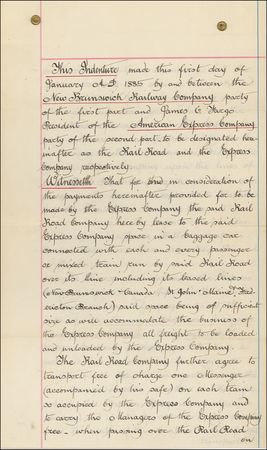 This Indenture made this first day of
January A.D. 1885 by and between the
New Brunswick Railway Company party
of the first part and James C. Fargo
President of the American Express Company
party of the second part, to be designated here-
inafter as the Rail Road and the Express
Company respectively.
Witnesseth That for and in consideration of
the payments hereinafter provided for to be
made by the Express Company the said Rail
Road Company hereby lease to the said
Express Company space in a baggage car
connected with each and every passenger
or mixed train run by said Rail Road
over its line including its leased lines
(New Brunswick & Canada, St John & Maine, Fred-
ericton Branch) said space being of sufficient
size as will accommodate the business of
the Express Company all freight to be loaded
and unloaded by the Express Company.
The Rail Road Company further agree to
transport free of charge one Messenger
(accompanied by his safe) on each train
so occupied by the Express Company and
to carry the Managers of the Express Company
free – when passing over the Rail Road
on